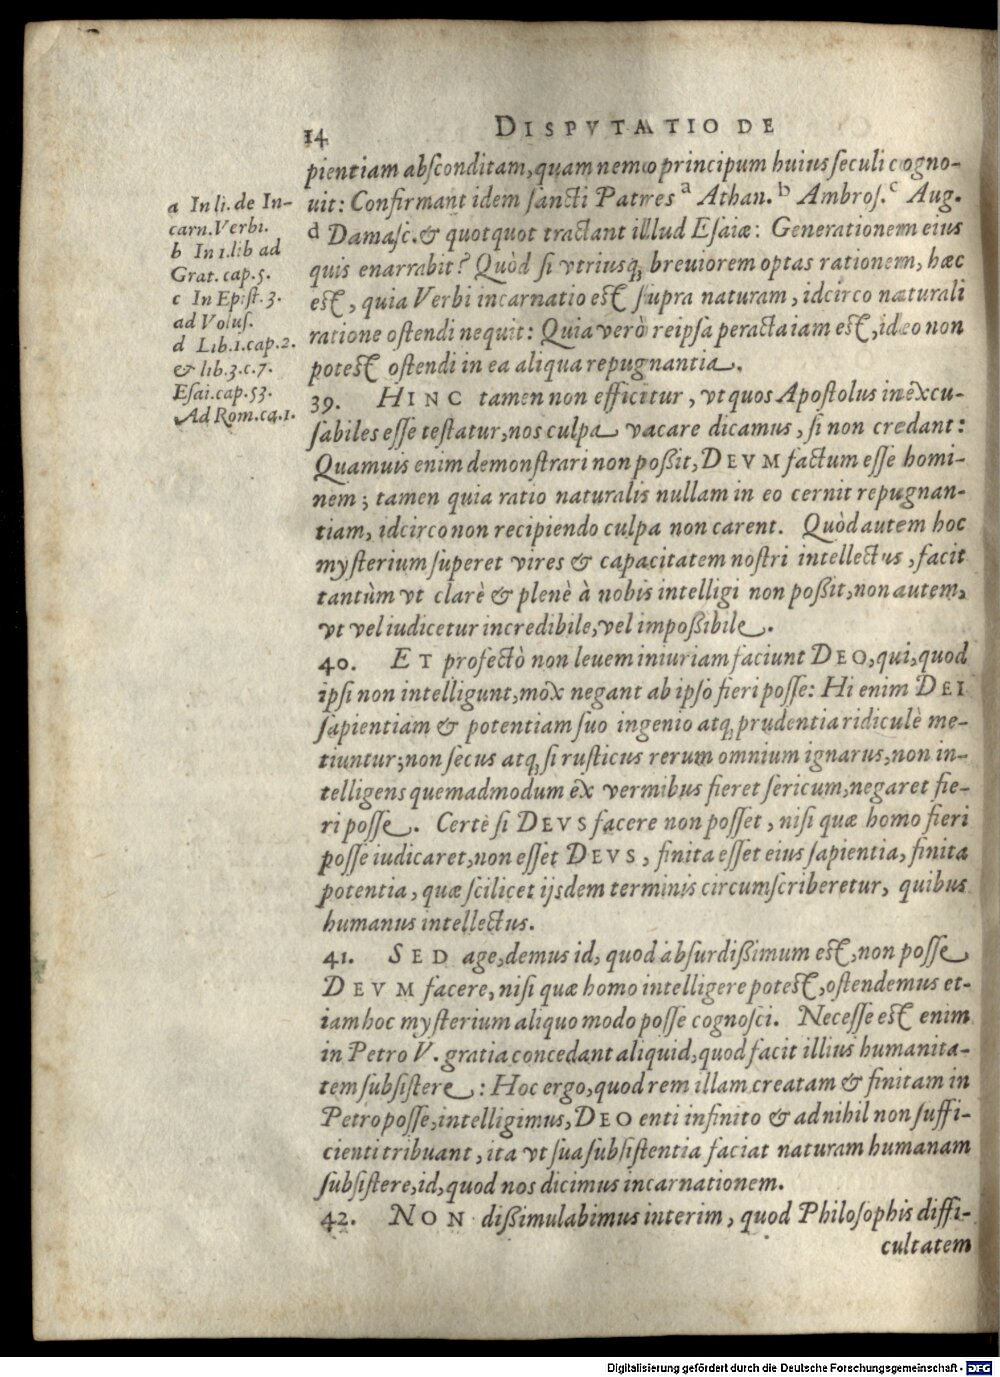 14 DISPVTATIO DE
pientiam absconditam, quam nemo principum huius seculi cogno-
uit: Confirmant idem sancti Patres a Athan. b Ambros. c Aug.
d Damasc. & quotquot tractant illud Esaiæ: Generationem eius
quis enarrabit? Quòd si vtriusq; breuiorem optas rationem, hæc
est, quia Verbi incarnatio est supra naturam, idcirco naturali
ratione ostendi nequit: Quia verò reipsa peracta iam est, ideo non
potest ostendi in ea aliqua repugnantia.
a In li. de In-
carn. Verbi.
b In 1. lib ad
Grat. cap. 5.
c In Epist. 3.
ad Volus.
d Lib. 1. cap. 2.
& lib. 3. c. 7.
Esai. cap. 53.
Ad Rom. ca. 1.
39. HINC tamen non efficitur, vt quos Apostolus inexcu-
sabiles esse testatur, nos culpa vacare dicamus, si non credant:
Quamuis enim demonstrari non poßit, DEVM factum esse homi-
nem; tamen quia ratio naturalis nullam in eo cernit repugnan-
tiam, idcirco non recipiendo culpa non carent. Quòd autem hoc
mysterium superet vires & capacitatem nostri intellectus, facit
tantùm vt clarè & plenè à nobis intelligi non poßit, non autem,
vt vel iudicetur incredibile, vel impoßibile.
40. ET profectò non leuem iniuriam faciunt DEO, qui, quod
ipsi non intelligunt, mox negant ab ipso fieri posse: Hi enim DEI
sapientiam & potentiam suo ingenio atq; prudentia ridiculè me-
tiuntur; non secus atq; si rusticus rerum omnium ignarus, non in-
telligens quemadmodum ex vermibus fieret sericum, negaret fie-
ri posse. Certè si DEVS facere non posset, nisi quæ homo fieri
posse iudicaret, non esset DEVS, finita esset eius sapientia, finita
potentia, quæ scilicet ijsdem terminis circumscriberetur, quibus
humanus intellectus.
41. SED age, demus id, quod absurdißimum est, non posse
DEVM facere, nisi quæ homo intelligere potest, ostendemus et-
iam hoc mysterium aliquo modo posse cognosci. Necesse est enim
in Petro V. gratia concedant aliquid, quod facit illius humanita-
tem subsistere: Hoc ergo, quod rem illam creatam & finitam in
Petro posse, intelligimus, DEO enti infinito & ad nihil non suffi-
cienti tribuant, ita vt sua subsistentia faciat naturam humanam
subsistere, id, quod nos dicimus incarnationem.
42. NON dißimulabimus interim, quod Philosophis diffi-
cultatem
Digitalisierung gefördert durch die Deutsche Forschungsgemeinschaft - DFG